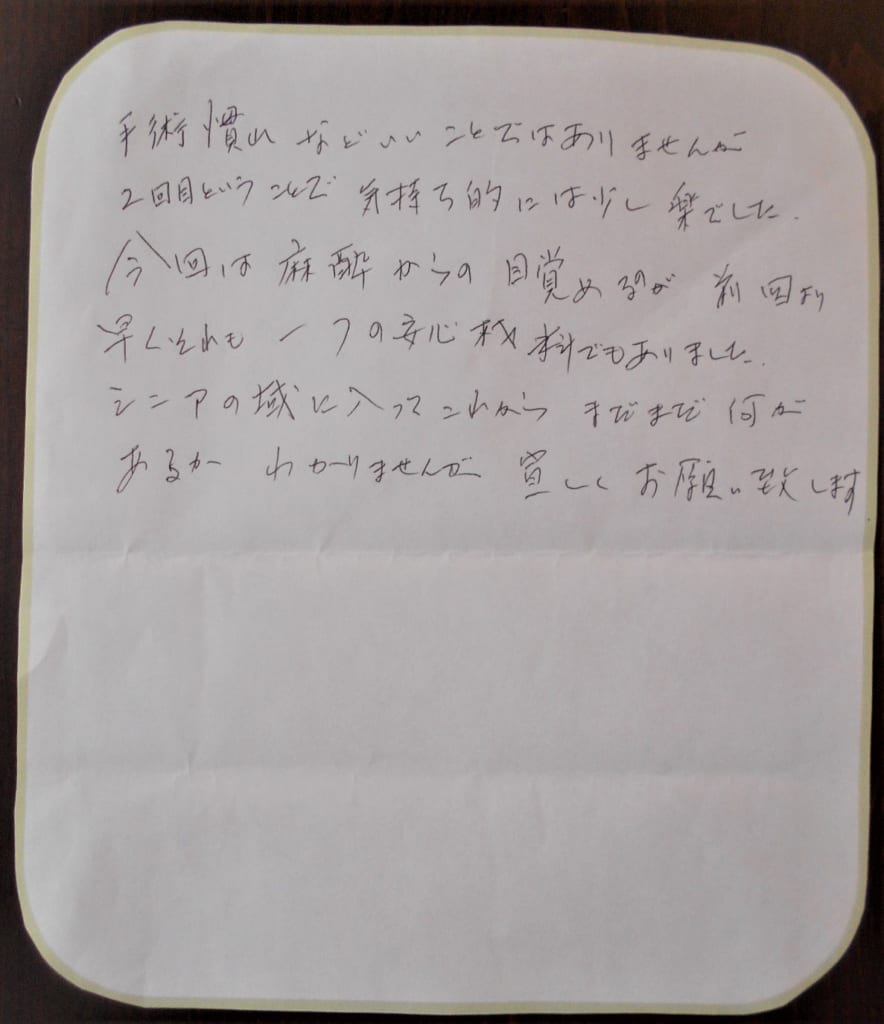 手術慣れなどいいことではありませんが
2回目ということで気持ち的には少し楽でした.
今回は麻酔からの目覚めるのが前回より
早くそれも一つの安心材料でもありました.
シニアの域に入ってこれからまだまだ何が
あるかわかりませんが宜しくお願い致します.